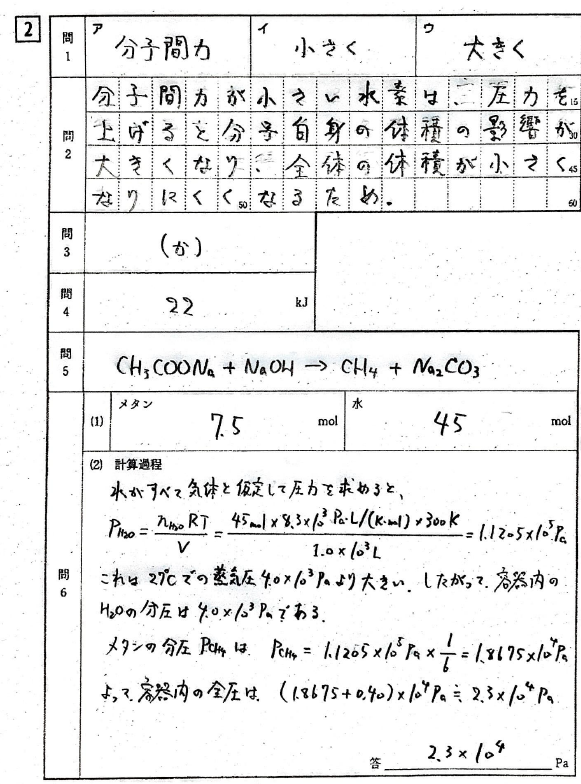 2
問1 ア 分子間力 イ 小さく ウ 大きく
問2
分子間力が小さい水素は、圧力を 15
上げると分子自身の体積の影響が 30
大きくなり、全体の体積が小さく 45
なりにくく 50 なるため。 60
問3 (か)
問4 22 kJ
問5 CH₃COONa + NaOH → CH₄ + Na₂CO₃
問6
(1) メタン 7.5 mol 水 45 mol
(2) 計算過程
水がすべて気体と仮定して圧力を求めると、
P_H₂O = n_H₂O RT / V = 45mol × 8.3×10³ Pa·L/(K·mol) × 300K / 1.0×10³L = 1.1205×10⁵Pa
これは27℃での蒸気圧4.0×10³Paより大きい。したがって、容器内の
H₂Oの分圧は4.0×10³Paである。
メタンの分圧P_CH₄は P_CH₄ = 1.1205×10⁵Pa × 1/6 = 1.8675×10⁴Pa
よって、容器内の全圧は、(1.8675+0.40)×10⁴Pa ≒ 2.3×10⁴Pa
答 2.3×10⁴ Pa